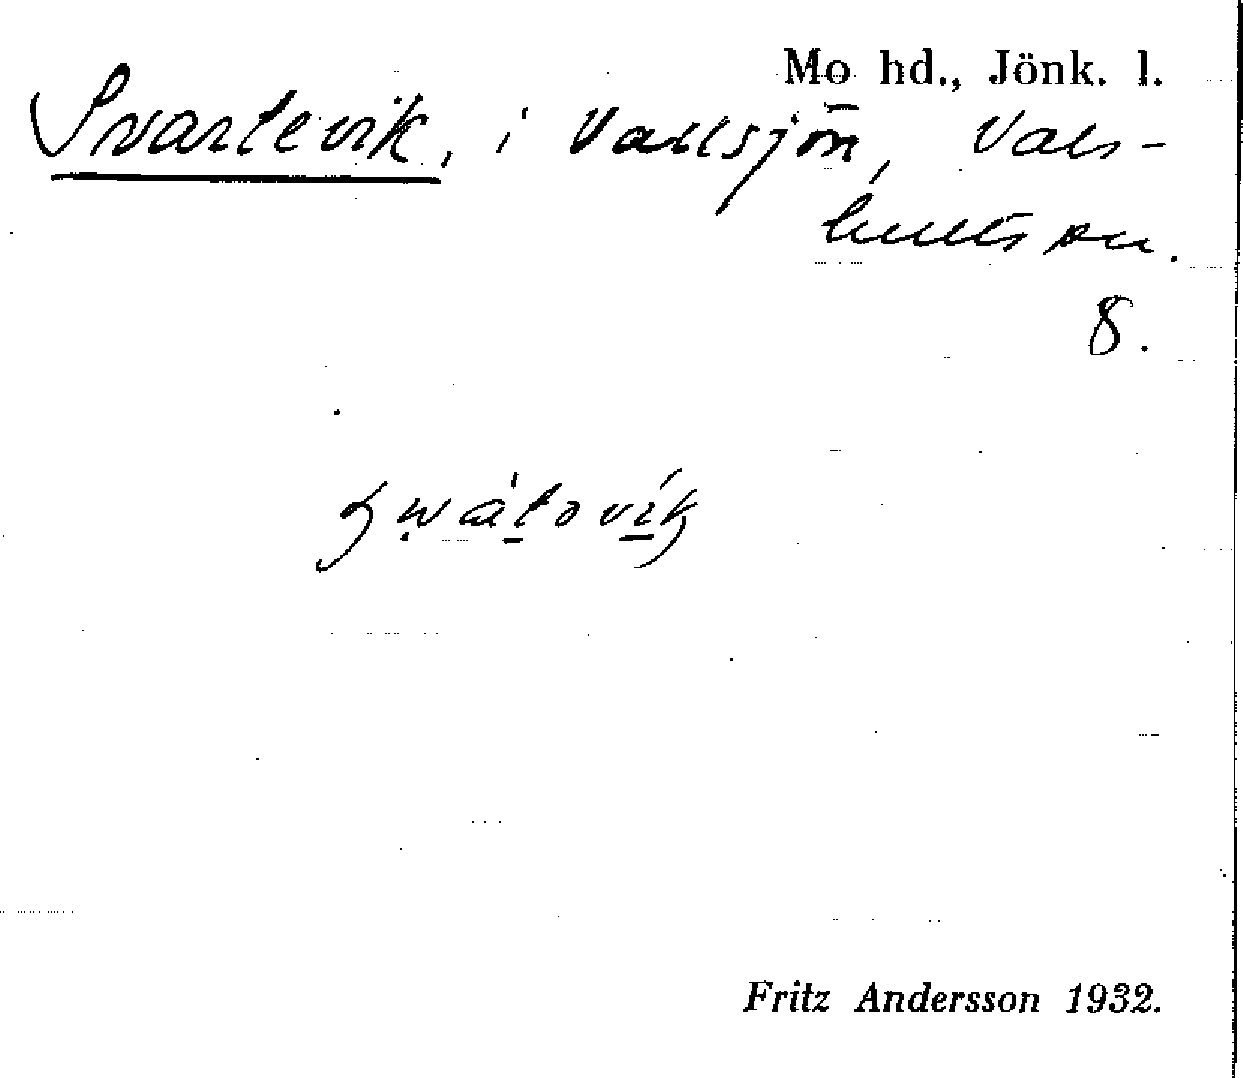 Mo hd., Jönk. l.
Svartevik, i Vallsjön, Vals-
hults sn.
8.
Fritz Andersson 1932.